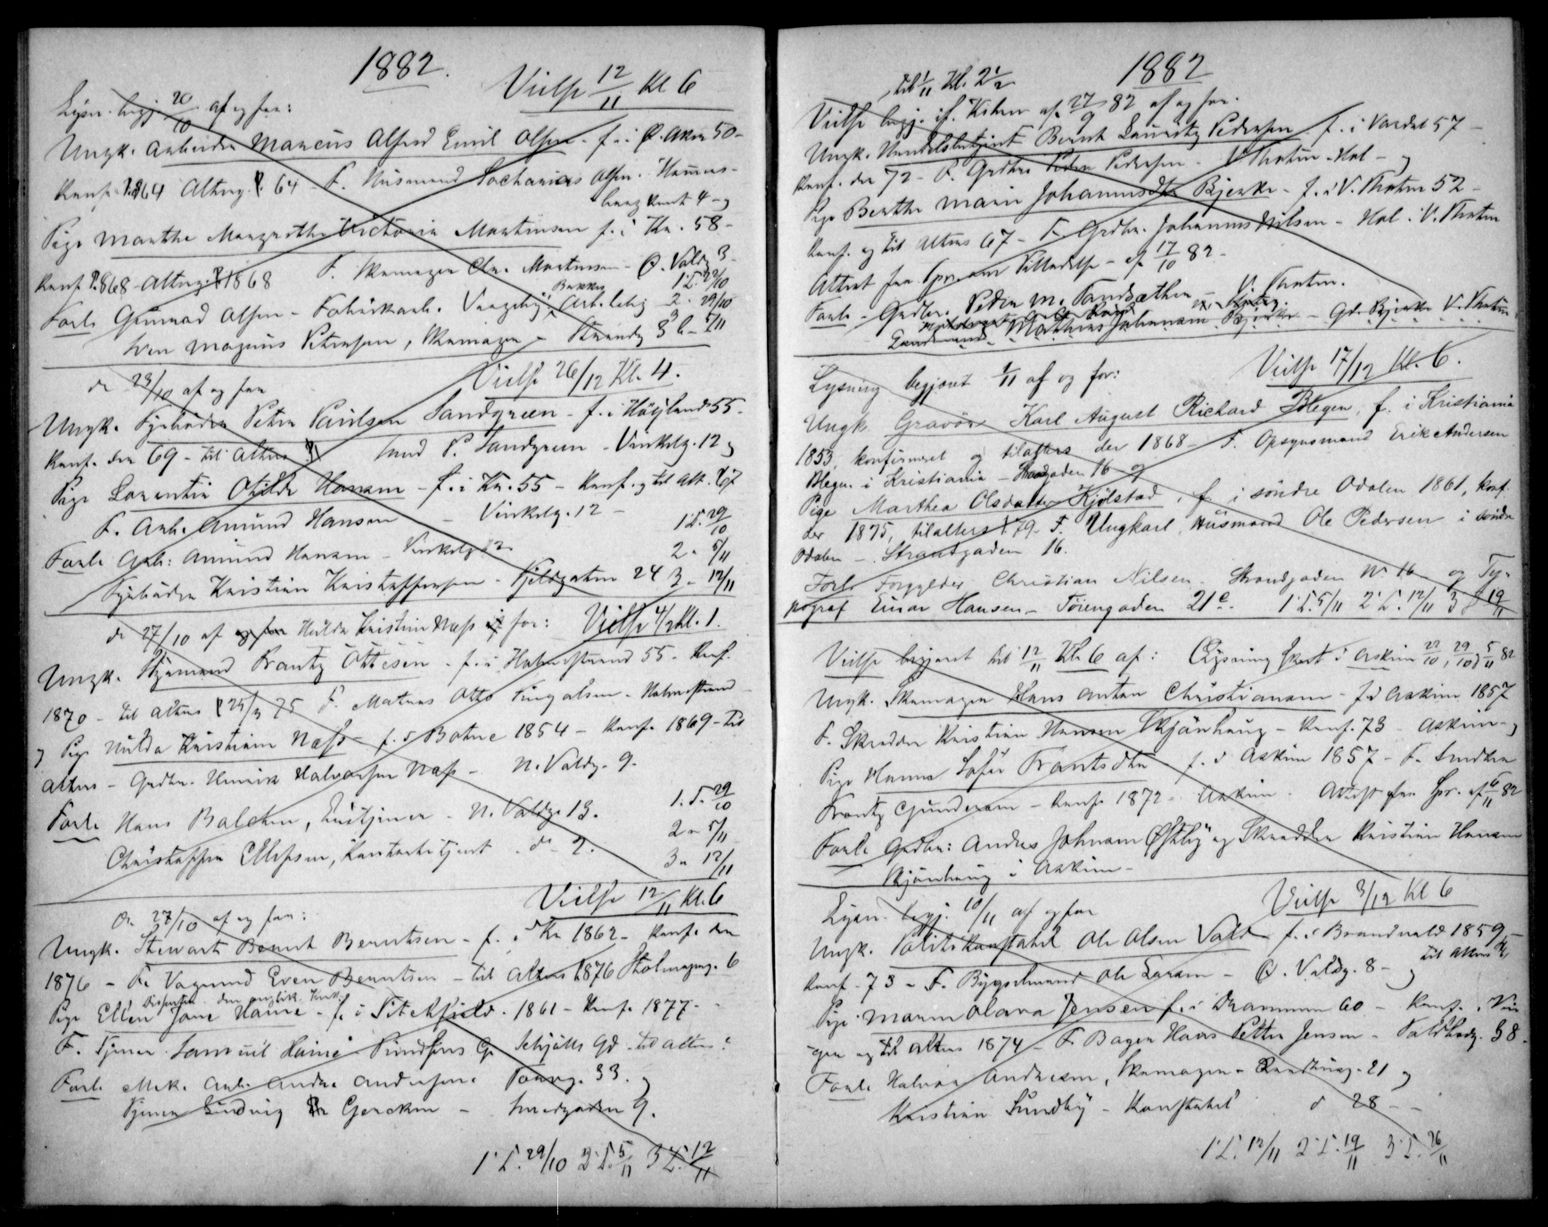 1882.
Vielse 12/11 Kl 6
Lysn. begj. 20/10 af og for:
Ungk. Arbeider Marcus Alfred Emil Olsen f. i Ø. Aker 50 -
Konf. 1864 Alterg. 64 - F. Husmand Zacharias Olsen
Pige Marthe Margrethe Victoria Martinsen f. i Kr. 58 -
Konf. 1868 - Alterg. 1868 F. Skomager Chr. Martinsen - Ø. Valdg 3 - 1 L. 22/10
Forl. Gunerad Olsen - Fabrikarb. 2 - 29/10
Sven Magnus Petersen, Skomager - Strandg 3 L - 5/11
do 23/10 af og for Vielse 26/12 Kl. 4.
Ungk. Fyrbøder Peter Paulsen Sandgreen - f. i 55.
Konf. der 69 - til Alters P. Sandgreen - Vinkelg. 12 og
Pige Laurentia Otilde Hansen - f. i Kr. 55 - Konf. og til Alt. 67
F. Arb. Amund Hansen - Vinkelg. 12 - 1 L. 29/10
Forl. Arb: Amund Hansen - Vinkelg 12 2 - 5/11
Fyrbøder Kristian Kristoffersen - Fjeldgaten 24 3 - 12/11
do 27/10 af og for Hulda Kristine Næss for: Vielse 4/12 Kl. 1.
Ungk. Styrmand Frantz Ottesen - f. i Holmestrand 55 - Konf.
1870 - til Alters 25/3 75 F. Matros Otto - Holmestrand
og Pige Hulda Kristine Næss - f. i Botne 1854 - Konf. 1869 - til
Alters - Grdbr. Henrik Halvorsen Næss - N. Valdg. 9.
Forl. Hans Balchen, - N. Valdg. 13. 1. L. 29/10
2 - 5/11
Christoffer Ellefsen, Kontorbetjent - do 9. 3 - 12/11
Vielse 12/11 Kl. 6
do 27/10 af og for:
Ungk. Stewart Bernt Berntsen - f. i Kr 1862 - Konf. der
1876 - F. Vognmand Even Berntsen - til Alters 1876 Holmensg. 6
Dissenter den engelske Kirke
Pige Ellen Jane Haine - f. i Pitchfield - 1861 - Konf. 1877 -
F. Tjener Samuel Haine Schjøtts Gd - til Alters:
Forl. Mek. Arb. Andr. Andersen 33. og
Tjener Ludvig Gercken - Smedgaden 9.
1' L. 29/10 2 L. 5/11 3 L. 12/11
1882
til 1/11 Kl. 2½
Vielse begj. af 27/9 82 af og for.
Ungk. Handelsbetjent Bernt Lauritz Pedersen f. i Vardal 57 -
Konf. der 72 - F. Grdbr Peder Pedersen - V. Thoten - Hol - og
Pige Berthe Marie Johannesdtr Bjerke - f. i V. Thoten 52 -
Konf. og til Alters 67 - F. Grdbr. Johannes Nilsen - Hol i V. Thoten
Attest fra Tilladelse - af 17/10 82 -
Forl. - Grdbr. Peder M. - V. Thoten.
Mathias Johansen Bjerke - Gd. Bjerke V. Thoten
Lysning begjært 2/11 af og for: Vielse 17/12 Kl. 6.
Ungk. Gravør Karl August Richard Blegen, f. i Kristiania
1853, konfirmeret og tilalters der 1868 F. Opsynsmand Erik Andersen
Blegen i Kristiania - Strandgaden 16 og
Pige Marthea Olsdatter Kjølstad, f. i søndre Odalen 1861, konf.
der 1875, tilalters 79. F. Ungkarl, Husmand Ole Pedersen i søndre
Odalen - Strandgaden 16.
Forl. Forgylder Christian Nilsen - Strandgaden No 16 og Ty-
pograf Einar Hansen - Tøiengaden 21 c. 1 L. 5/11 2 L. 12/11 3 L 19/11
Vielse begjæret til 12/11 Kl. 6 af: Lysning skeet i Askim 22/10, 29/10, 5/11 82
Ungk. Skomager Hans Anton Christiansen - f. i Askim 1857
F. Skredder Kristian Hansen Skjønhaug - Konf. 73 - Askim - og
Pige Hanna Sofie Frantsdtr - f. i Askim 1857 - F. Smeden
Frantz Gundersen - Konf. 1872 - Askim. Attest fra Spr. af 6/11 82
Forl. Grdbr: Andres Johnsen Østby og Skredder Kristian Hansen
Skjønhaug i Askim -
Lysn. begj. 10/11 af og for Vielse 3/12 Kl 6
Ungk. Politikonstabel Ole Olsen Vold - f. i Brandvold 1859 -
Konf. 73 - F. Bygselmand Ole Larsen - Ø. Valdg. 8 - og til Alters
Pige Maren Olava Jensen f. i Drammen 60 - Konf. i Vin
gen og til Alters 1874 - F. Bager Hans Petter Jensen - 38.
Forl. Halvor Andresen, Skomager - 21 og
Kristian Sundby - Konstabel do 28 -
1 L. 12/11 2 L. 19/11 3 L. 26/11